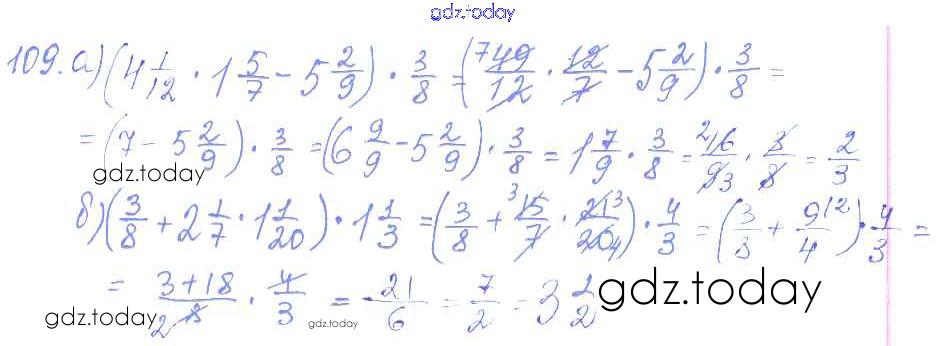 gdz.today
109. а) (4 1/12 · 1 5/7 − 5 2/9) · 3/8 = (7 49/12 · 12/7 − 5 2/9) · 3/8 =
= (7 − 5 2/9) · 3/8 = (6 9/9 − 5 2/9) · 3/8 = 1 7/9 · 3/8 = 2 16/9 3 · 3/8 = 2/3
gdz.today
б) (3/8 + 2 1/7 · 1 1/20) · 1 1/3 = (3/8 + 3 15/7 · 21 3/20 4) · 4/3 = (3/8 + 9 12/4) · 4/3 =
= 3+18/2 8 · 4/3 = 21/6 = 7/2 = 3 1/2
gdz.today
gdz.today
gdz.today